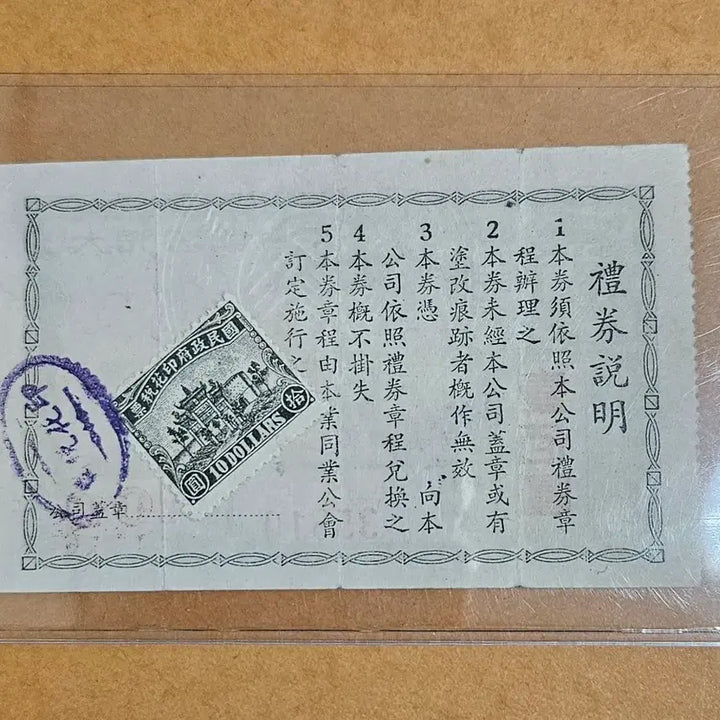 禮券說明
1本券須依照本公司禮券章
程辦理之
2本券未經本公司蓋章或有
塗改痕跡者概作無效
3本券憑 向本
公司依照禮券章程兌換之
4本券概不掛失
5本券章程由本業同業公會
訂定施行之
國民政府印花稅票
拾
圓
10 DOLLARS
公司蓋章